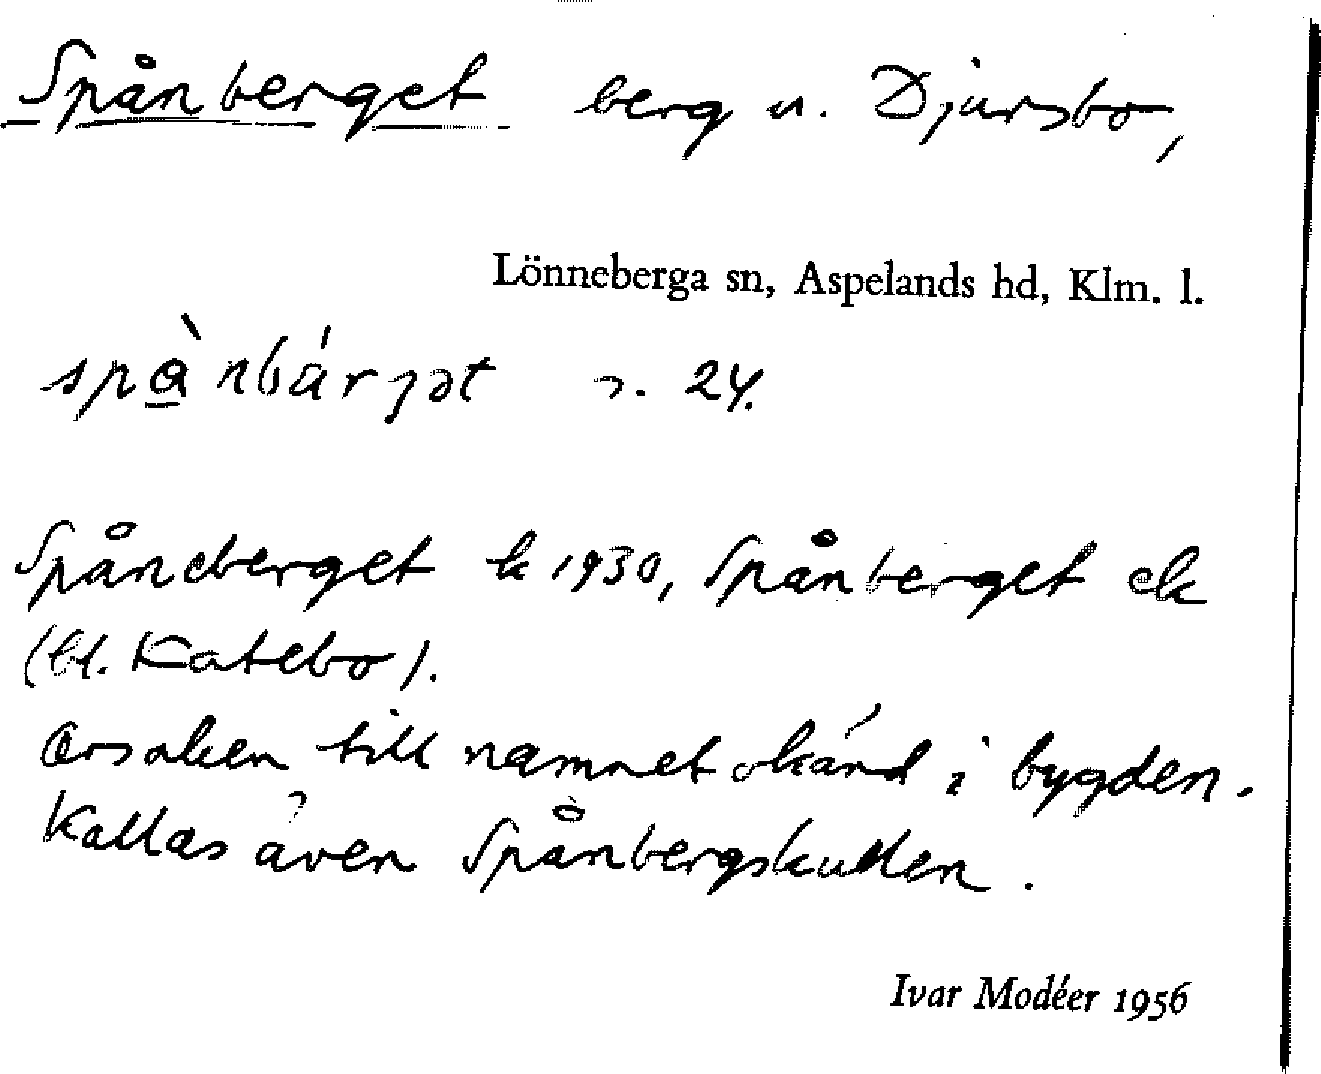 Spånberget berg u. Djursbo,
Lönneberga sn, Aspelands hd, Klm. l.
spɑ̀nbárjət s. 24.
Spåneberget k 1930, Spånberget ek
(bl. Katebo).
Orsaken till namnet okänd i bygden.
Kallas även Spånbergskullen.
Ivar Modéer 1956